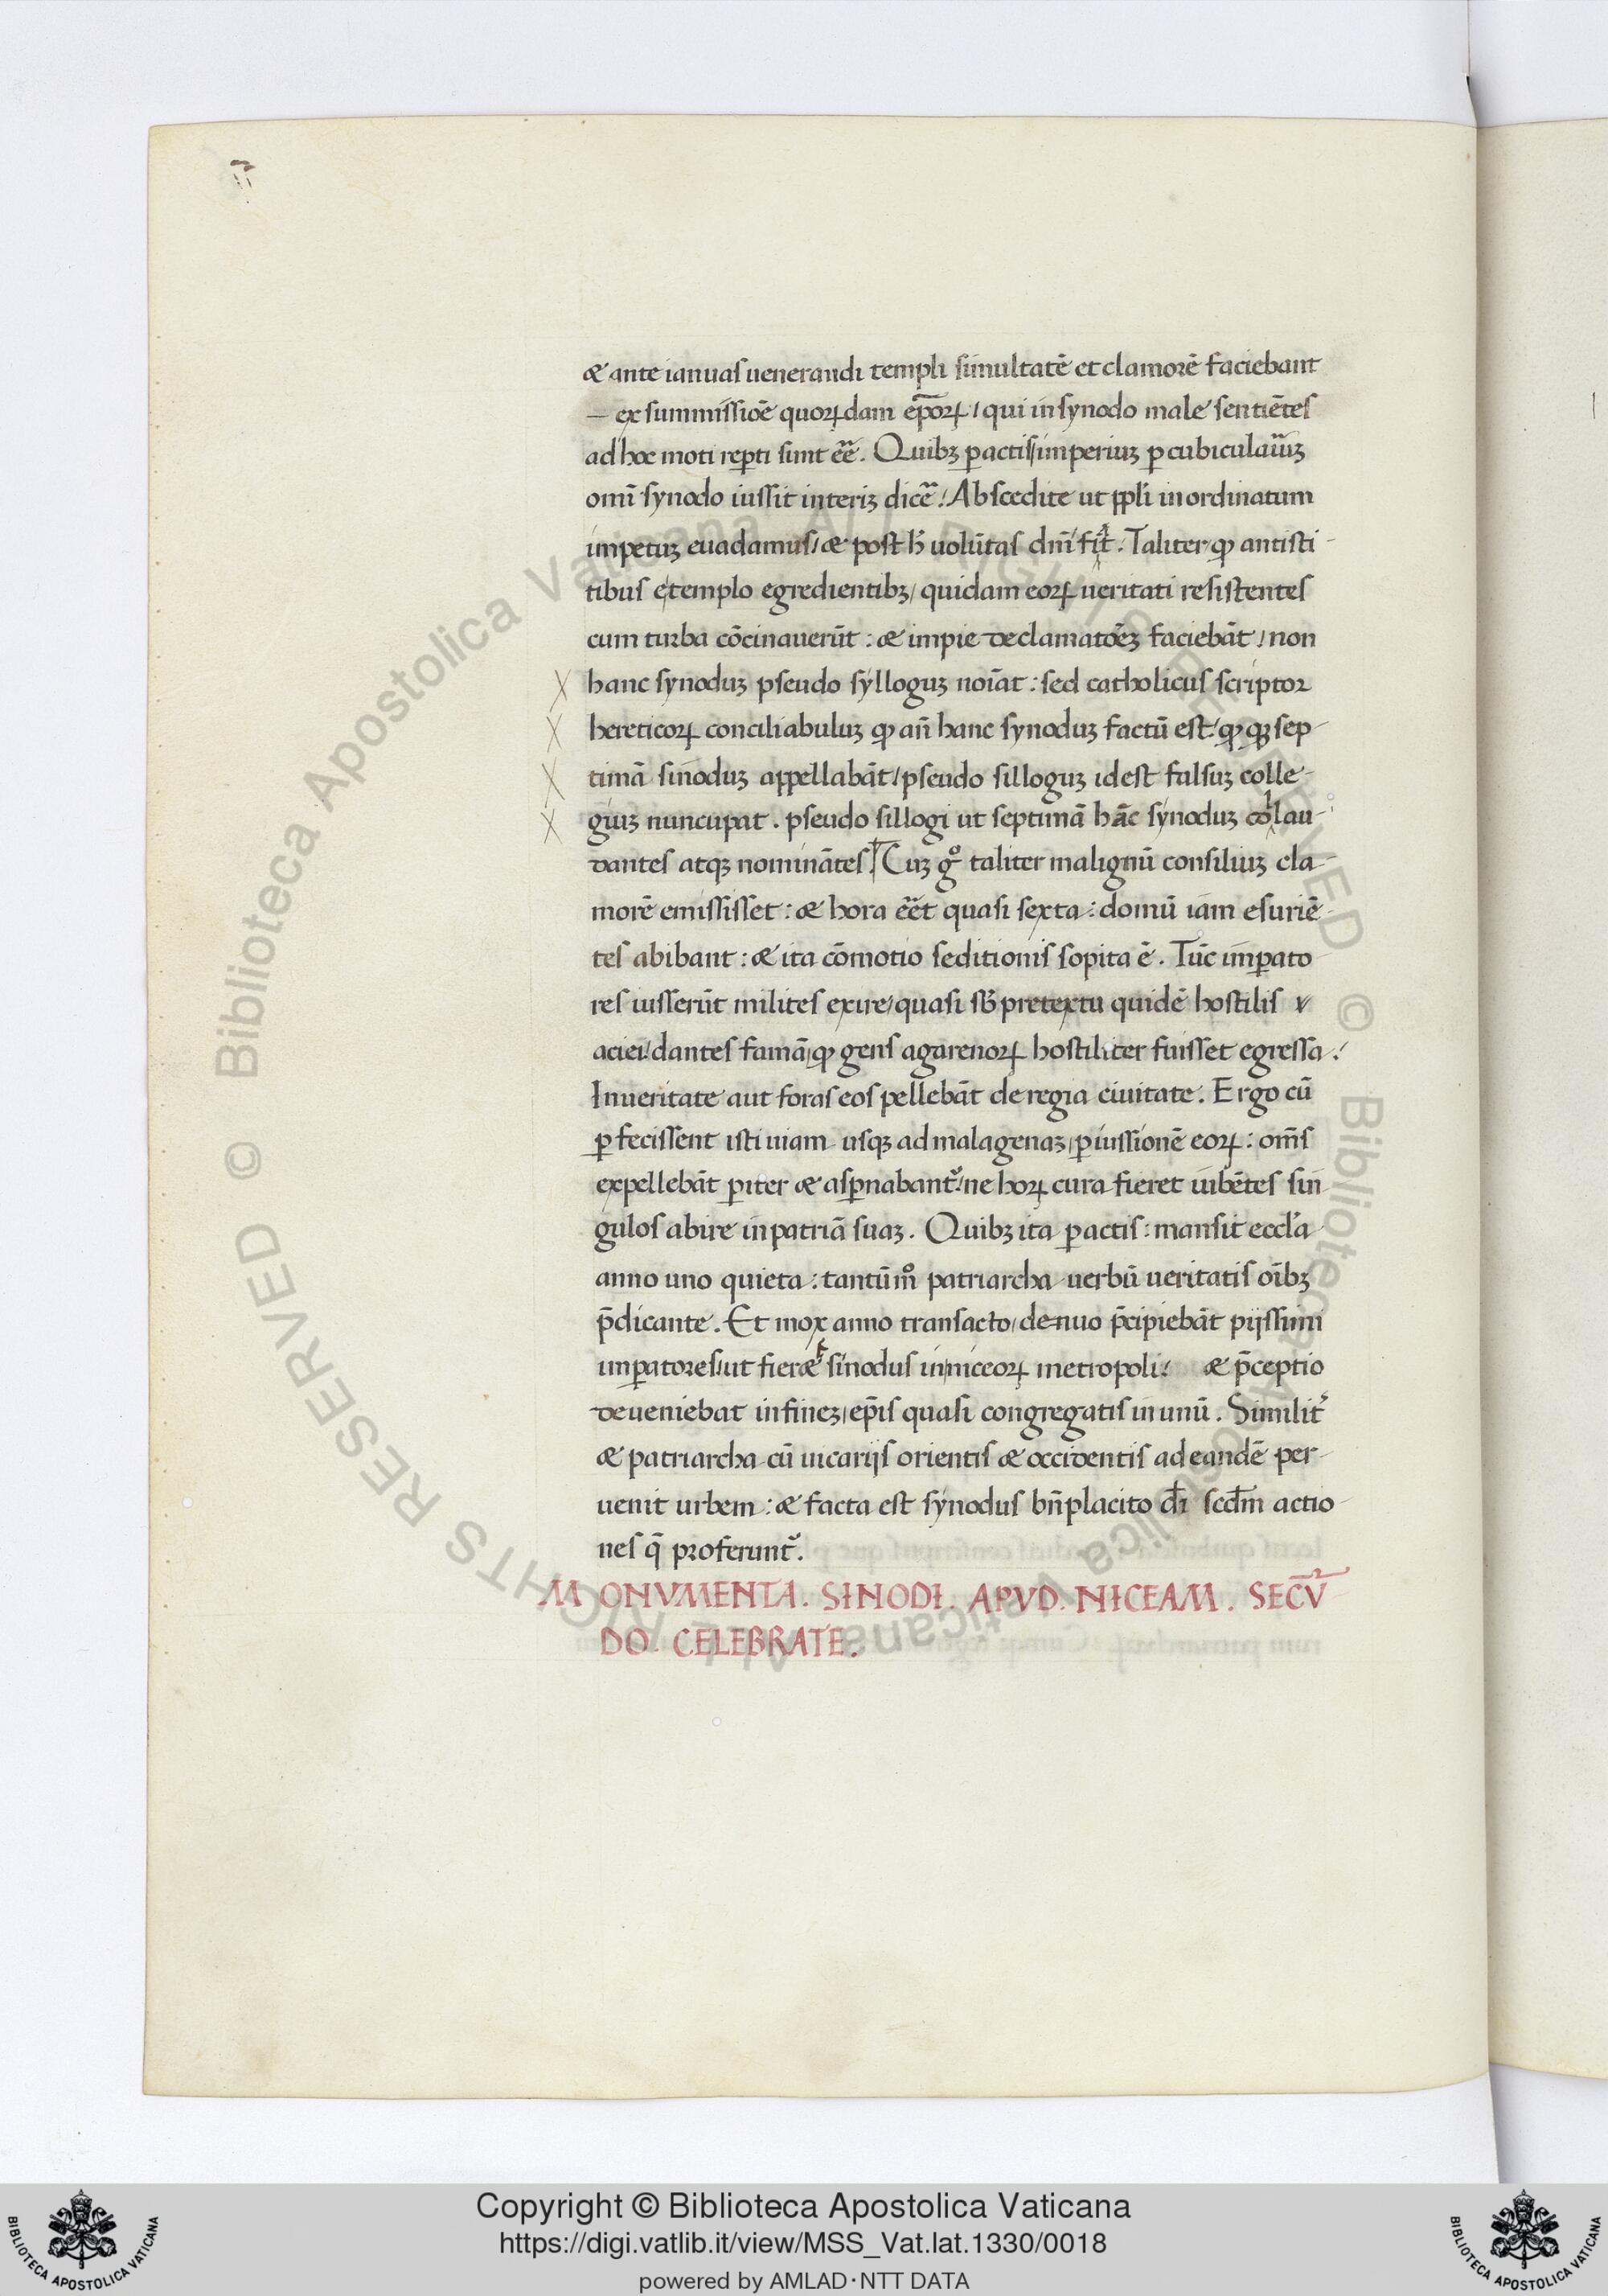 æ ante ianuas uenerandi templi simultatē et clamorē faciebant
— ex summissiōe quorꝝdam ep̄orꝝ / qui in synodo male sentiētes
ad hoc moti rep̲ti sunt eē̄. Quibꝫ pactis / imperiuꝫ p cubiculariuꝫ
omī synodo iussit interiꝫ dicē̄ / Abscedite ut ppli inordinatum
impetuꝫ euadamus / æ post h̄ uolūtas dn̄i fiat. Taliter ꝙ antisti-
tibus e templo egredientibꝫ / quidam eorꝝ ueritati resistentes
cum turba cōcinauerūt : æ impie declamatōeꝫ faciebāt / non
hanc synoduꝫ pseudo sylloguꝫ noīat : sed catholicus scriptor
hereticorꝝ conciliabuluꝫ ꝙ an̄ hanc synoduꝫ factū est / ꝙ ꝗꝫ sep-
timā sinoduꝫ appellabāt / pseudo silloguꝫ idest falsuꝫ colle-
giuꝫ nuncupat . pseudo sillogi ut septimā hāc synoduꝫ collau-
dantes atqꝫ nominātes. Cuꝫ gͦ taliter malignū consiliuꝫ cla-
morē emississet : æ hora eēt quasi sexta : domū iam esuriē-
tes abibant : æ ita cōmotio seditionis sopita ē . Tūc imꝑato
res iusserūt milites exire / quasi sb̄ pretextu quidē hostilis
aciei / dantes famā / ꝙ gens agarenorꝝ hostiliter fuisset egressa /
In ueritate aut foras eos pellebāt de regia ciuitate . Ergo cū
ꝑfecissent isti uiam usqꝫ ad malagenaꝫ / ꝑ iussionē eorꝝ : om̄s
expellebāt ꝑiter æ asꝑnabant᷑ / ne horꝝ cura fieret iubētes sin
gulos abire in patriā suaꝫ . Quibꝫ ita ꝑactis : mansit eccl̄a
anno uno quieta : tantūmͦ patriarcha uerbū ueritatis oībꝫ
p̄dicante . Et mox anno transacto / denuo p̄cipiebāt pijssimi
imꝑatores / ut fieret sinodus in niceorꝝ metropoli / æ p̄ceptio
deueniebat in fineꝫ / ep̄is quasi congregatis in unū . Similit᷑
æ patriarcha cū uicarijs orientis æ occidentis ad eandē per-
uenit urbem : æ facta est synodus bn̄placito dī scd̄m actio-
nes q̄ proferunt᷑.
MONVMENTA . SINODI . APVD . NICEAM . SECV̄
DO . CELEBRATE .
© Biblioteca Apostolica Vaticana ALL RIGHTS RESERVED © Biblioteca Apostolica Vaticana ALL RIGHTS RESERVED
Copyright © Biblioteca Apostolica Vaticana
https://digi.vatlib.it/view/MSS_Vat.lat.1330/0018
powered by AMLAD·NTT DATA
BIBLIOTECA APOSTOLICA VATICANA
BIBLIOTECA APOSTOLICA VATICANA